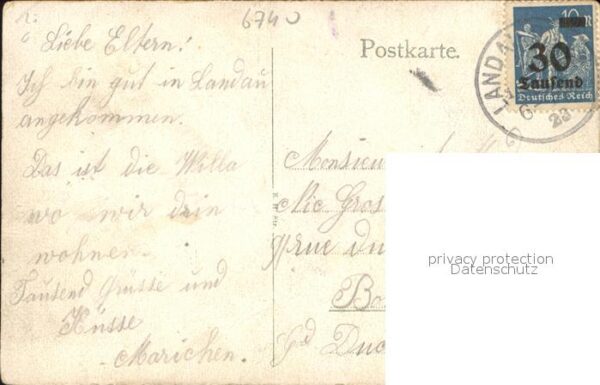 6740
Liebe Eltern!
Ich bin gut in Landau
angekommen.
Das ist die Willa
wo wir drin
wohnen.
Tausend Grüsse und
Küsse
Marichen.
Postkarte.
LANDAU
10
30
Tausend
Deutsches Reich
23
Monsieur
Nic Gros
rue du
Bo
Gd Duc
privacy protection
Datenschutz